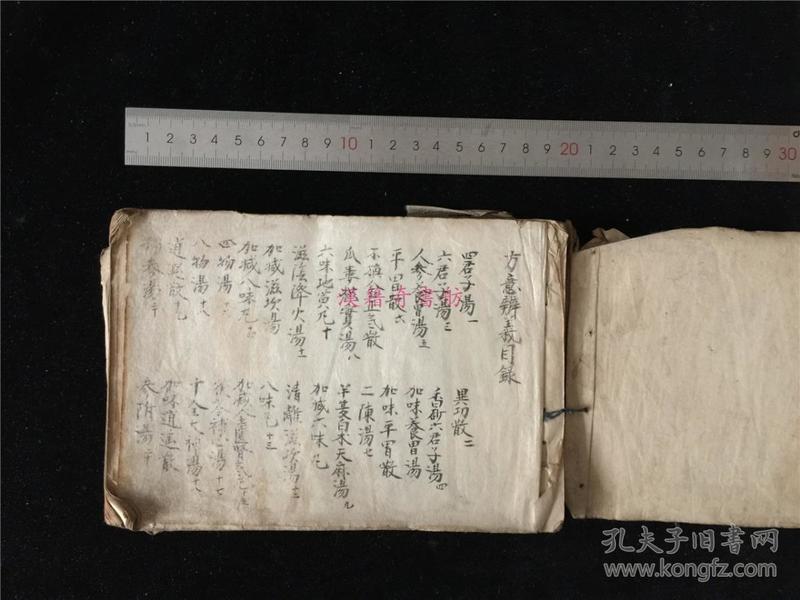 1 2 3 4 5 6 7 8 9 10 1 2 3 4 5 6 7 8 9 20 1 2 3 4 5 6 7 8 9 30
方意辨義目録
四君子湯一
異功散二
六君子湯三
香砂六君子湯四
人参養胃湯五
加味養胃湯
平胃散六
加味平胃散
不換金正気散
二陳湯七
瓜蔞枳實湯八
半夏白朮天麻湯九
六味地黄丸十
加減六味丸
滋陰降火湯十一
清離滋坎湯十二
加減滋坎湯
八味丸十三
加減八味丸
加減金匱腎氣丸
四物湯
湯十七
八物湯十八
十全大補湯十九
逍遥散
加味逍遥散
参附湯
漢籍奇書坊
孔夫子旧書网
www.kongfz.com